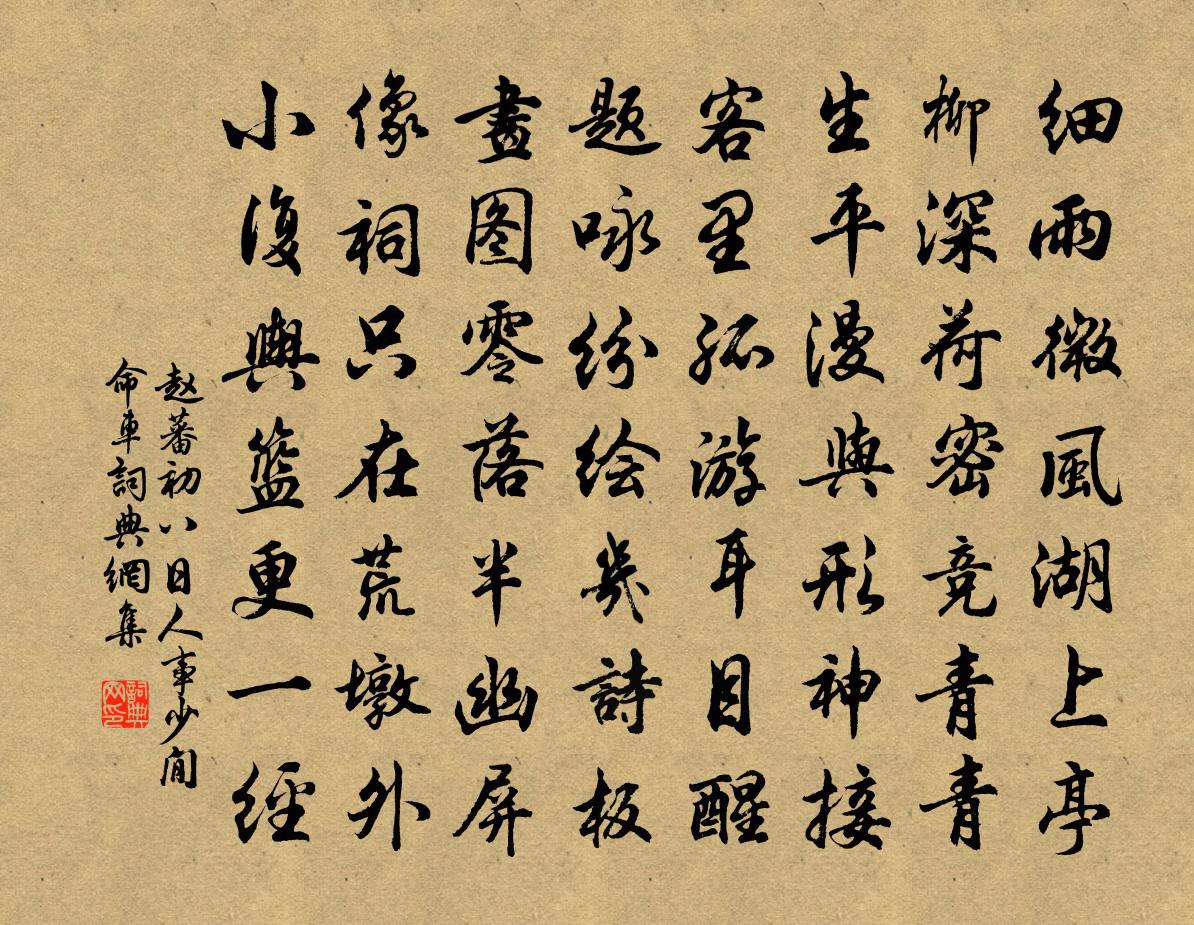 细雨微風湖上亭
柳深荷密竞青青
生平漫與形神接
客里孤游耳目醒
题咏纷绘幾詩板
畫图零落半幽屏
像祠只在荒墩外
小復輿籃更一經
赵蕃初八日人事少閒
命車詞典網集
詞典
网印